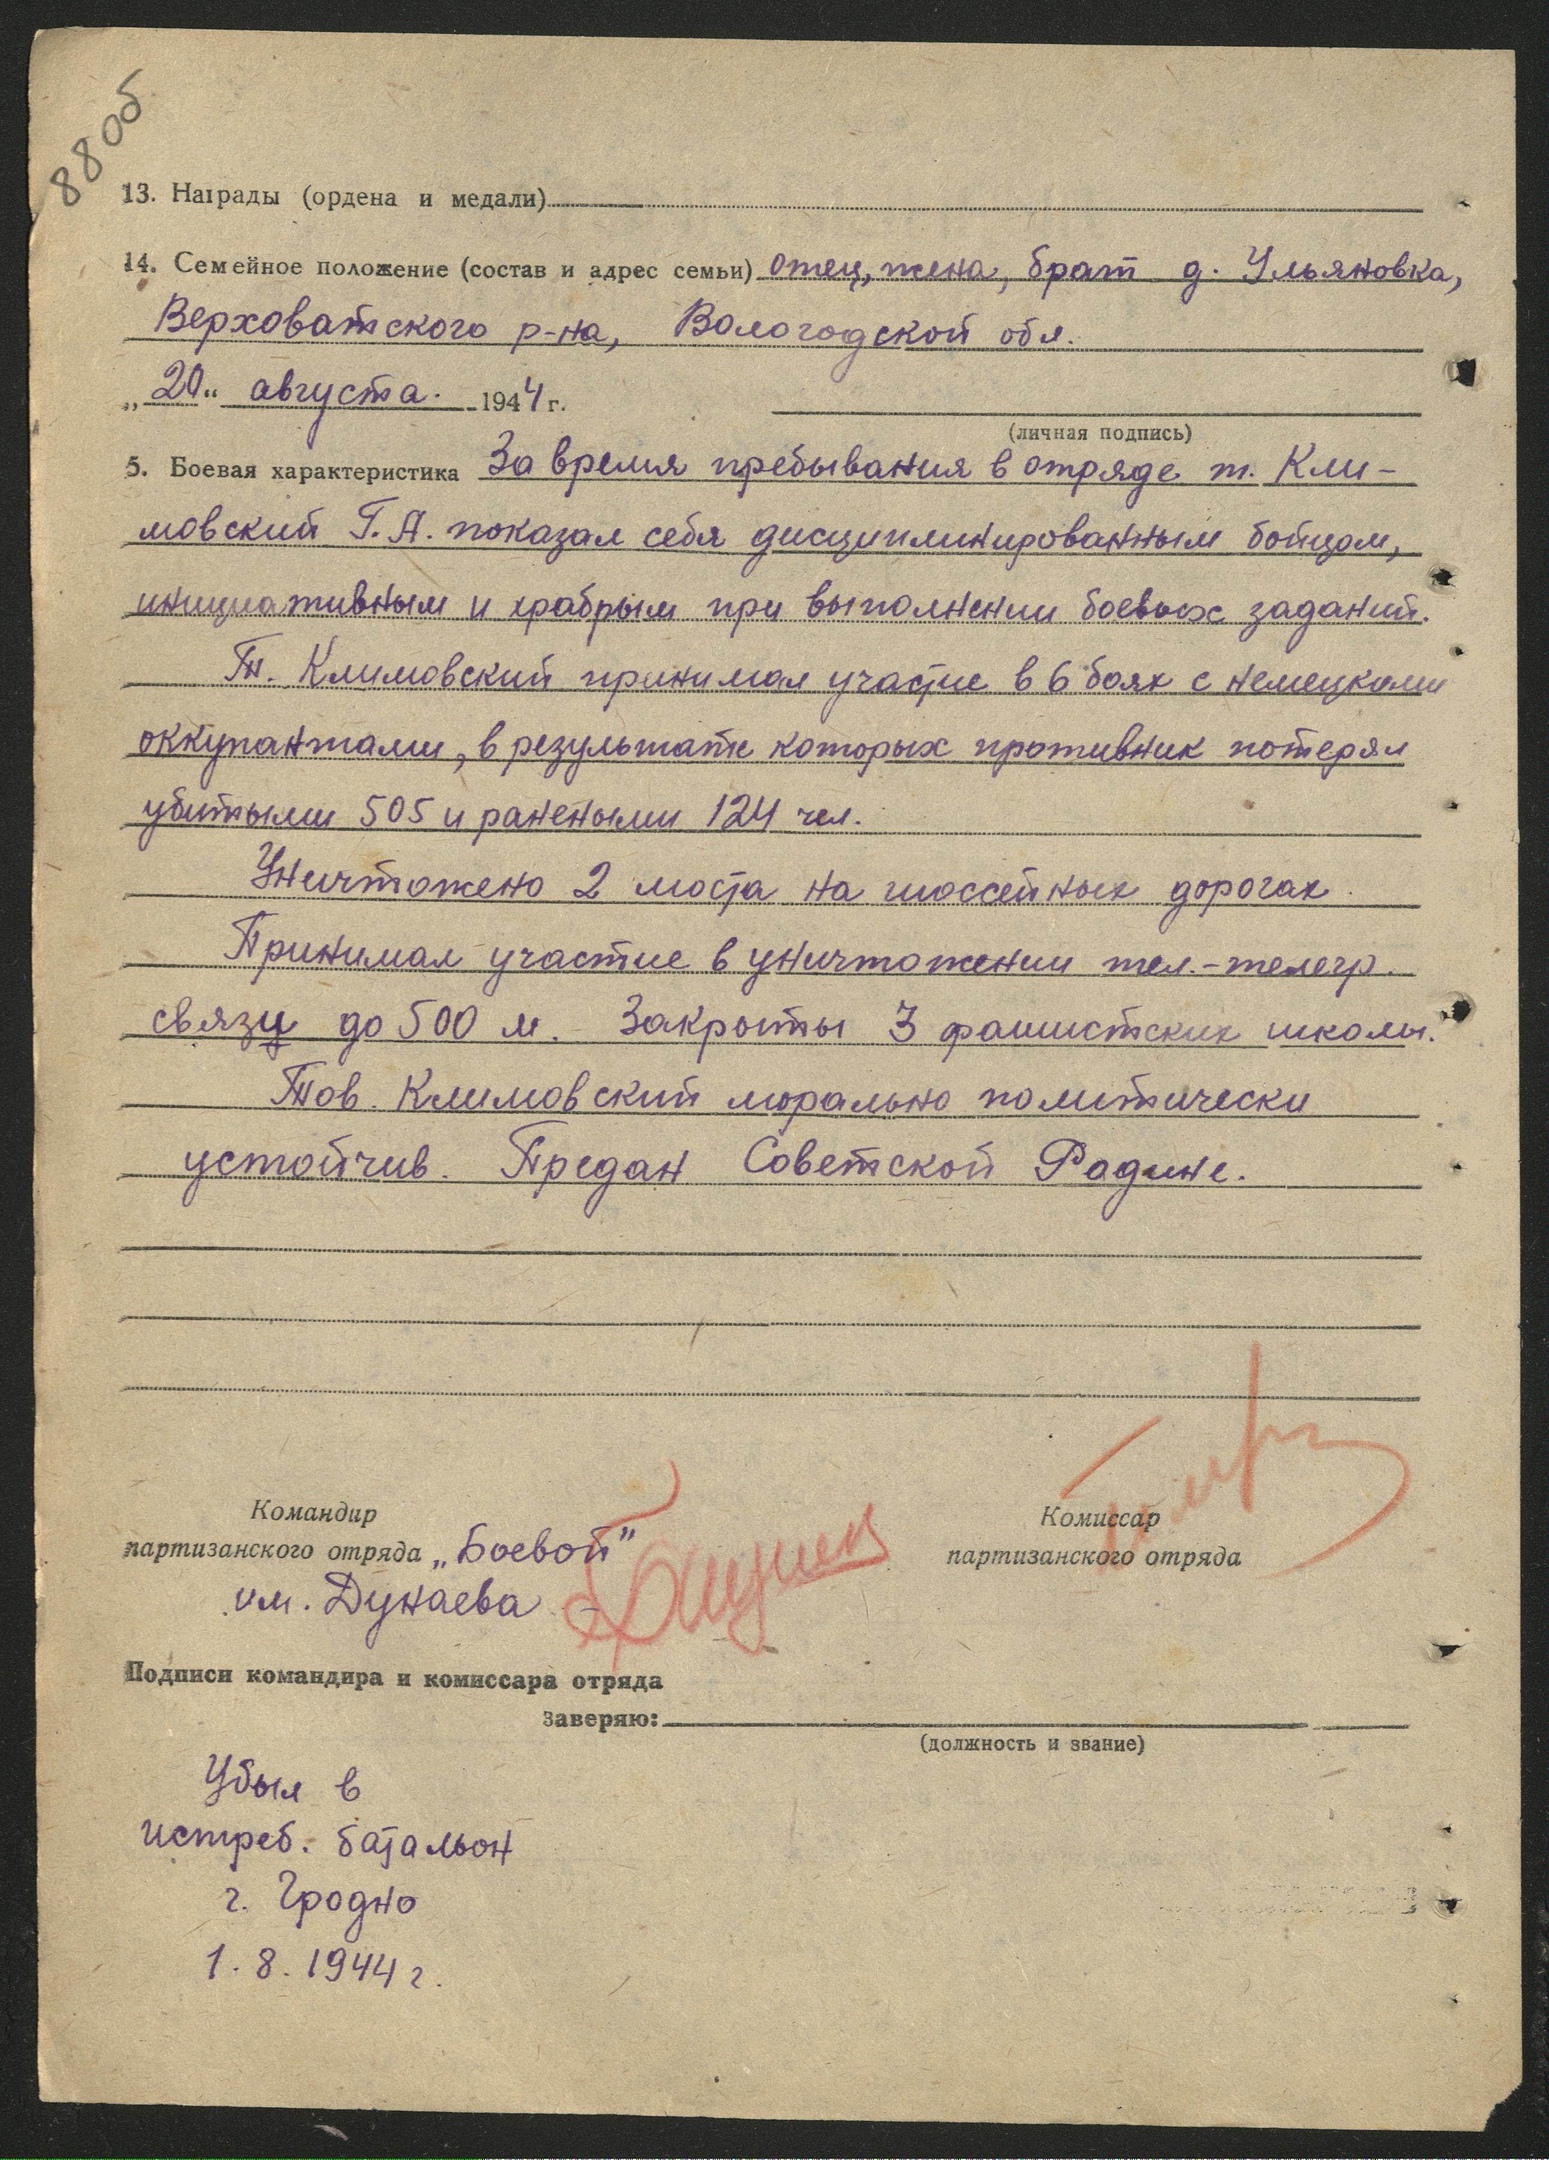 88об
13. Награды (ордена и медали)
14. Семейное положение (состав и адрес семьи) отец, жена, брат д. Ульяновка,
Верховатского р-на, Вологодской обл.
„20“ августа. 1944 г.
(личная подпись)
5. Боевая характеристика За время пребывания в отряде т. Кли-
мовский Г. А. показал себя дисциплинированным бойцом,
инициативным и храбрым при выполнении боевых заданий.
Т. Климовский принимал участие в 6 боях с немецкими
оккупантами, в результате которых противник потерял
убитыми 505 и ранеными 124 чел.
Уничтожено 2 моста на шоссейных дорогах.
Принимал участие в уничтожении тел.-телегр.
связи до 500 м. Закрыты 3 фашистских школы.
Тов. Климовский морально политически
устойчив. Предан Советской Родине.
Командир
партизанского отряда „Боевой”
им. Дунаева
Комиссар
партизанского отряда
Подписи командира и комиссара отряда
заверяю:
(должность и звание)
Убыл в
истреб. батальон
г. Гродно
1. 8. 1944 г.